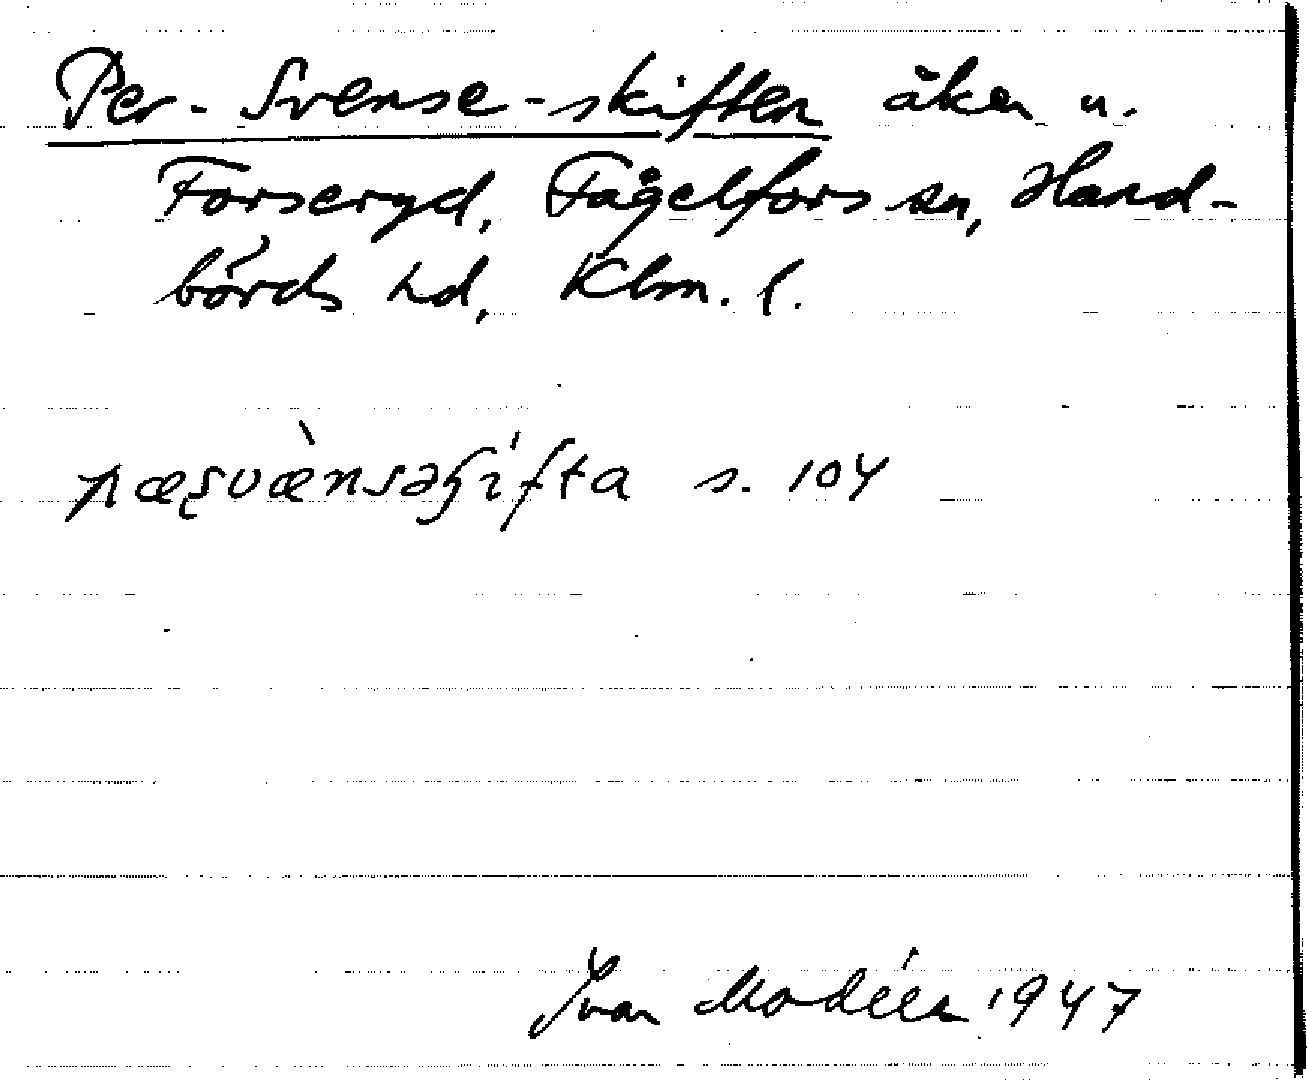 Per-Svense-skiften åker u.
Forseryd, Fågelfors sn, Hand-
börds hd, Klm. l.
pæʂvæ̀nsəʃífta s. 104
Ivar Modéer 1947